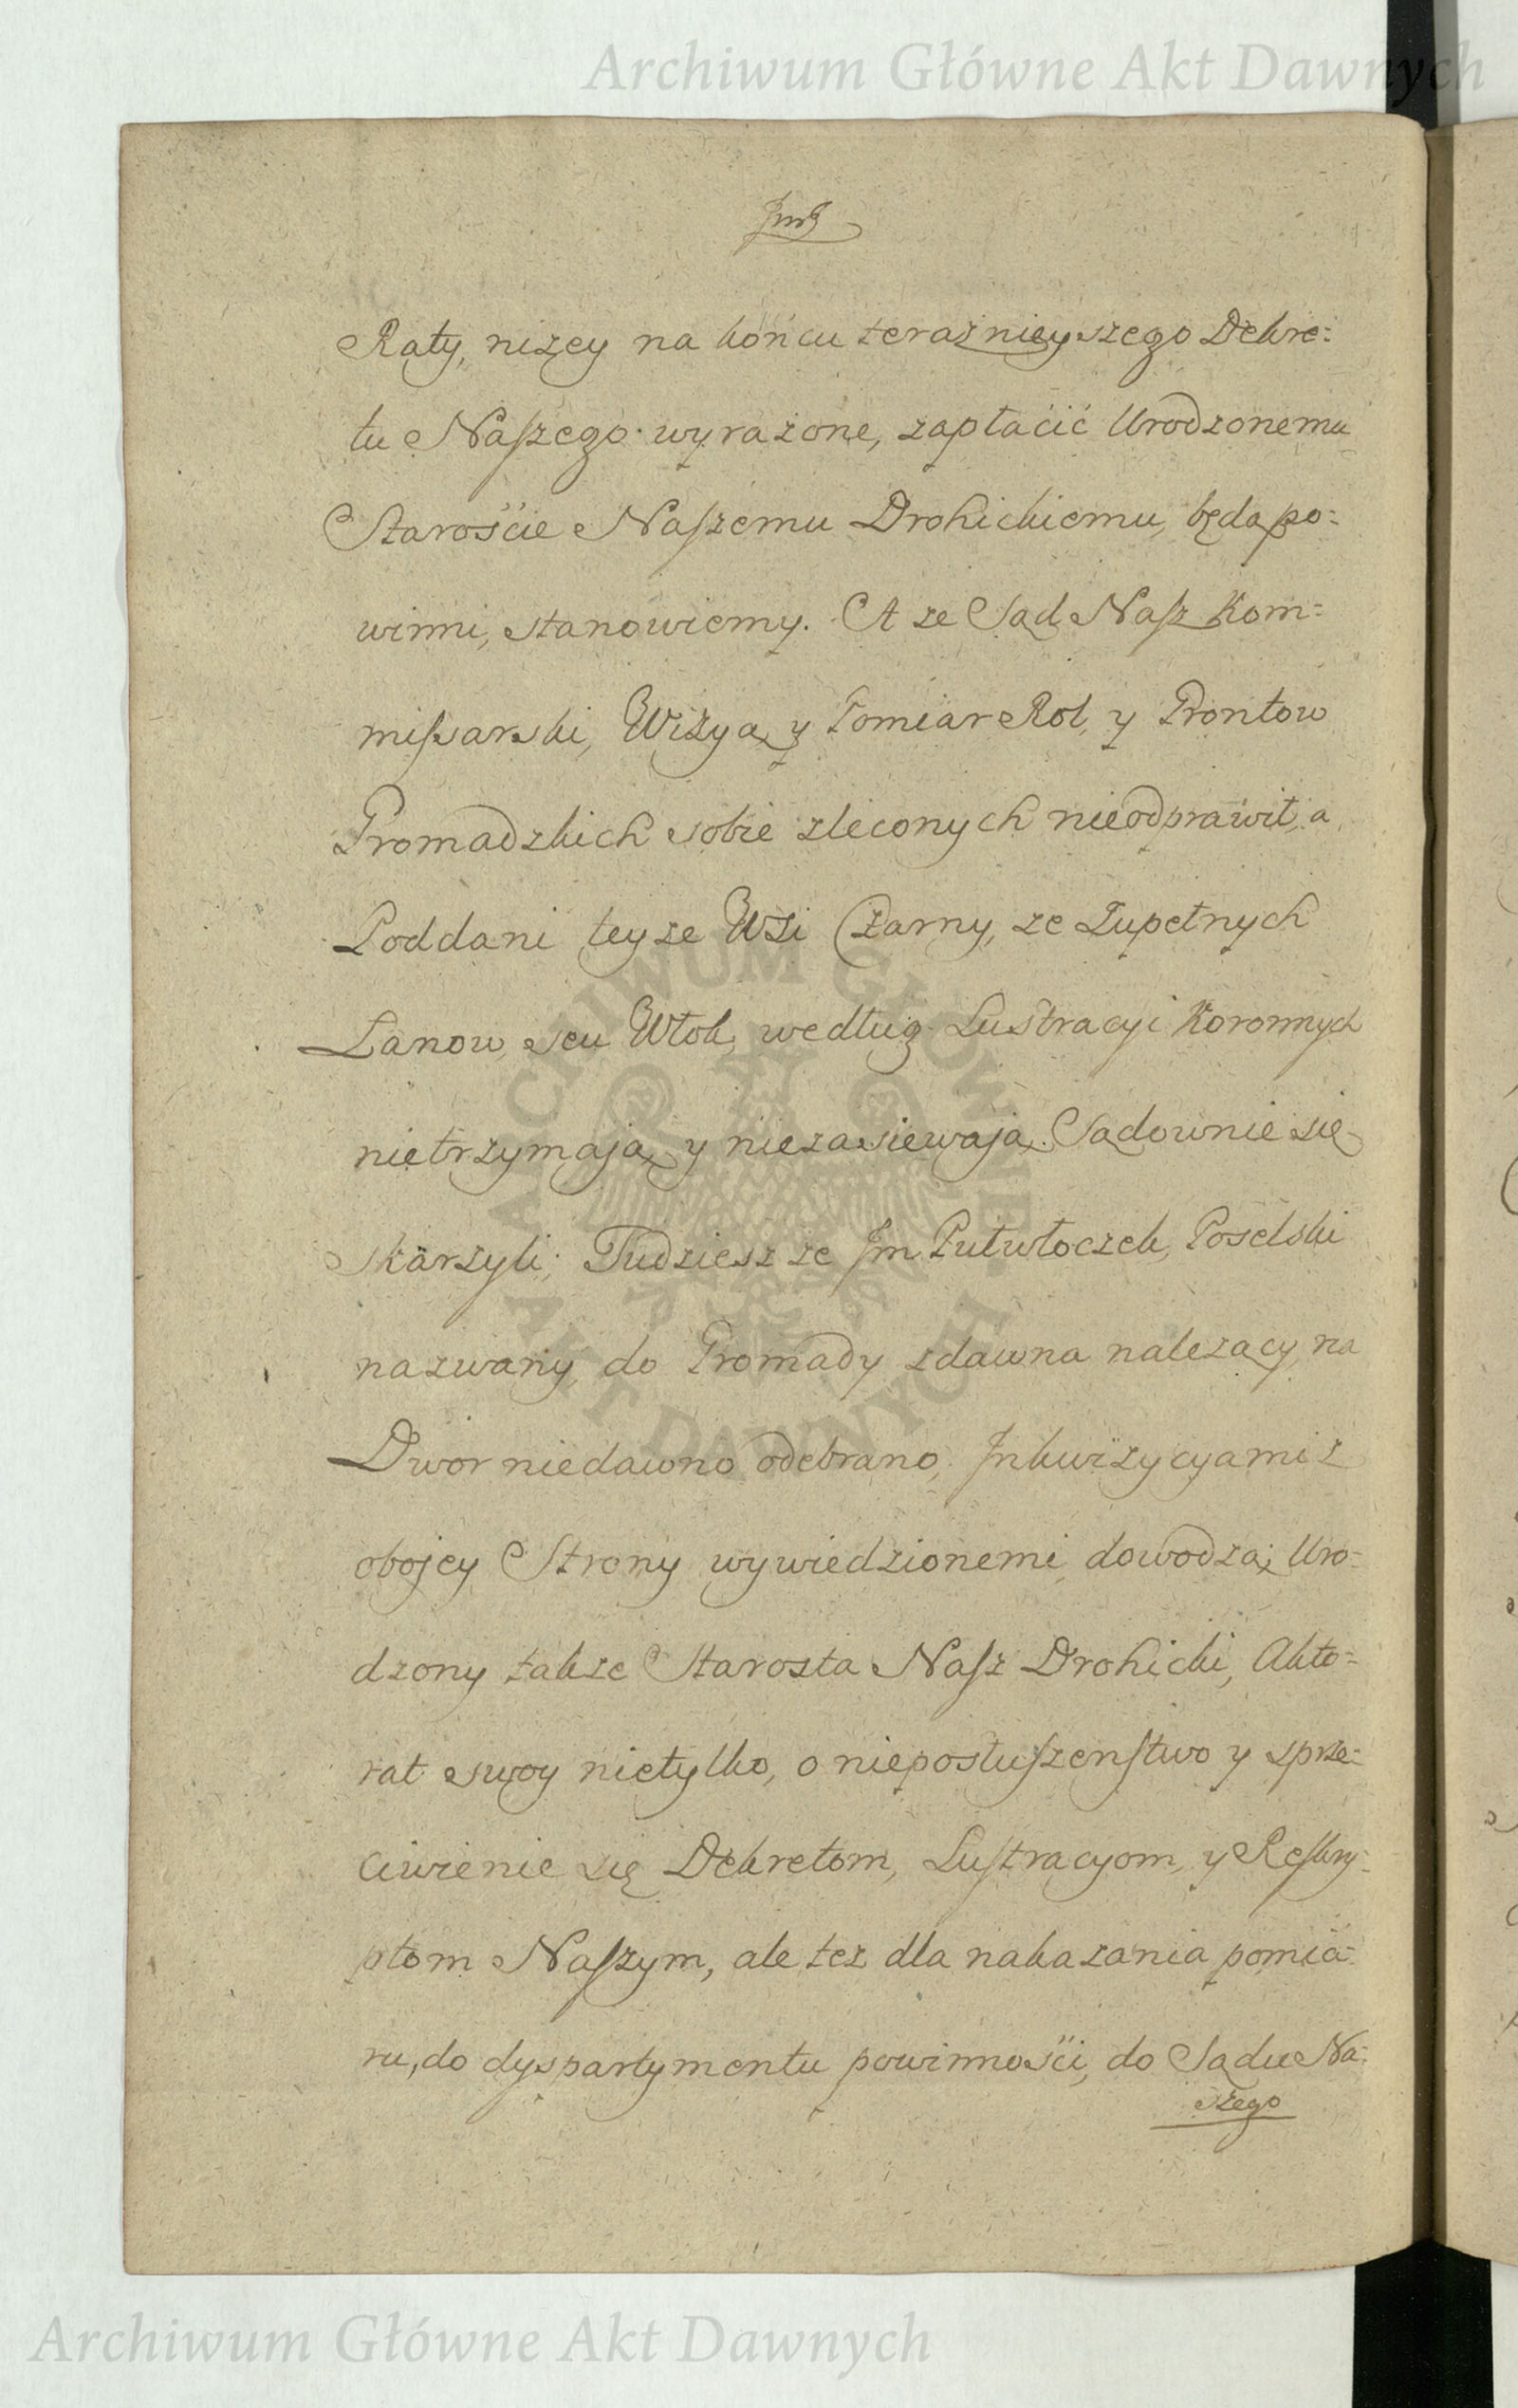 Archiwum Główne Akt Dawnych
Raty, niżey na końcu teraznieyszego Dekre:
tu Naszego wyrażone, zapłacić Urodzonemu
Starościе Naszemu Drohickiemu, będą po:
winni, stanowiemy. A że Sąd Nasz Kom:
missarski, Wizyą y Pomiar Rol, y Grontow
Gromadzkich sobie zleconych nieodprawił, a
Poddani teyże Wsi Czarny, że Zupełnych
Łanow, seu Włok, według Lustracyi Koronnych
nietrzymają, y niezasiewają, Sądownie się
skarżyli; Tudziesz że im Pułwłoczek, Poselski
nazwany, do Gromady zdawna należący, na
Dwor niedawno odebrano, Inkwizycyami z
obojey Strony wywiedzionemi, dowodzą; Uro:
dzony także Starosta Nasz Drohicki, Akto:
rat swoy nietylko, o nieposłuszeństwo y sprze:
ciwienie się Dekretom, Lustracyom, y Reskry:
ptom Naszym, ale tez dla nakazania pomia:
ru, do dyspartymentu powinności, do Sądu Na:
szego
ARCHIWUM GŁÓWNE AKT DAWNYCH
Archiwum Główne Akt Dawnych